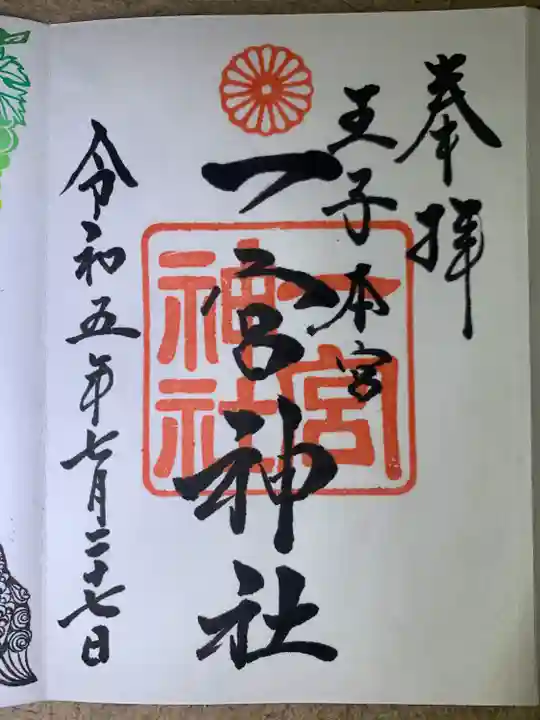 奉拝
王子本宮
一宮神社
一宮
神社
令和五年七月二十七日